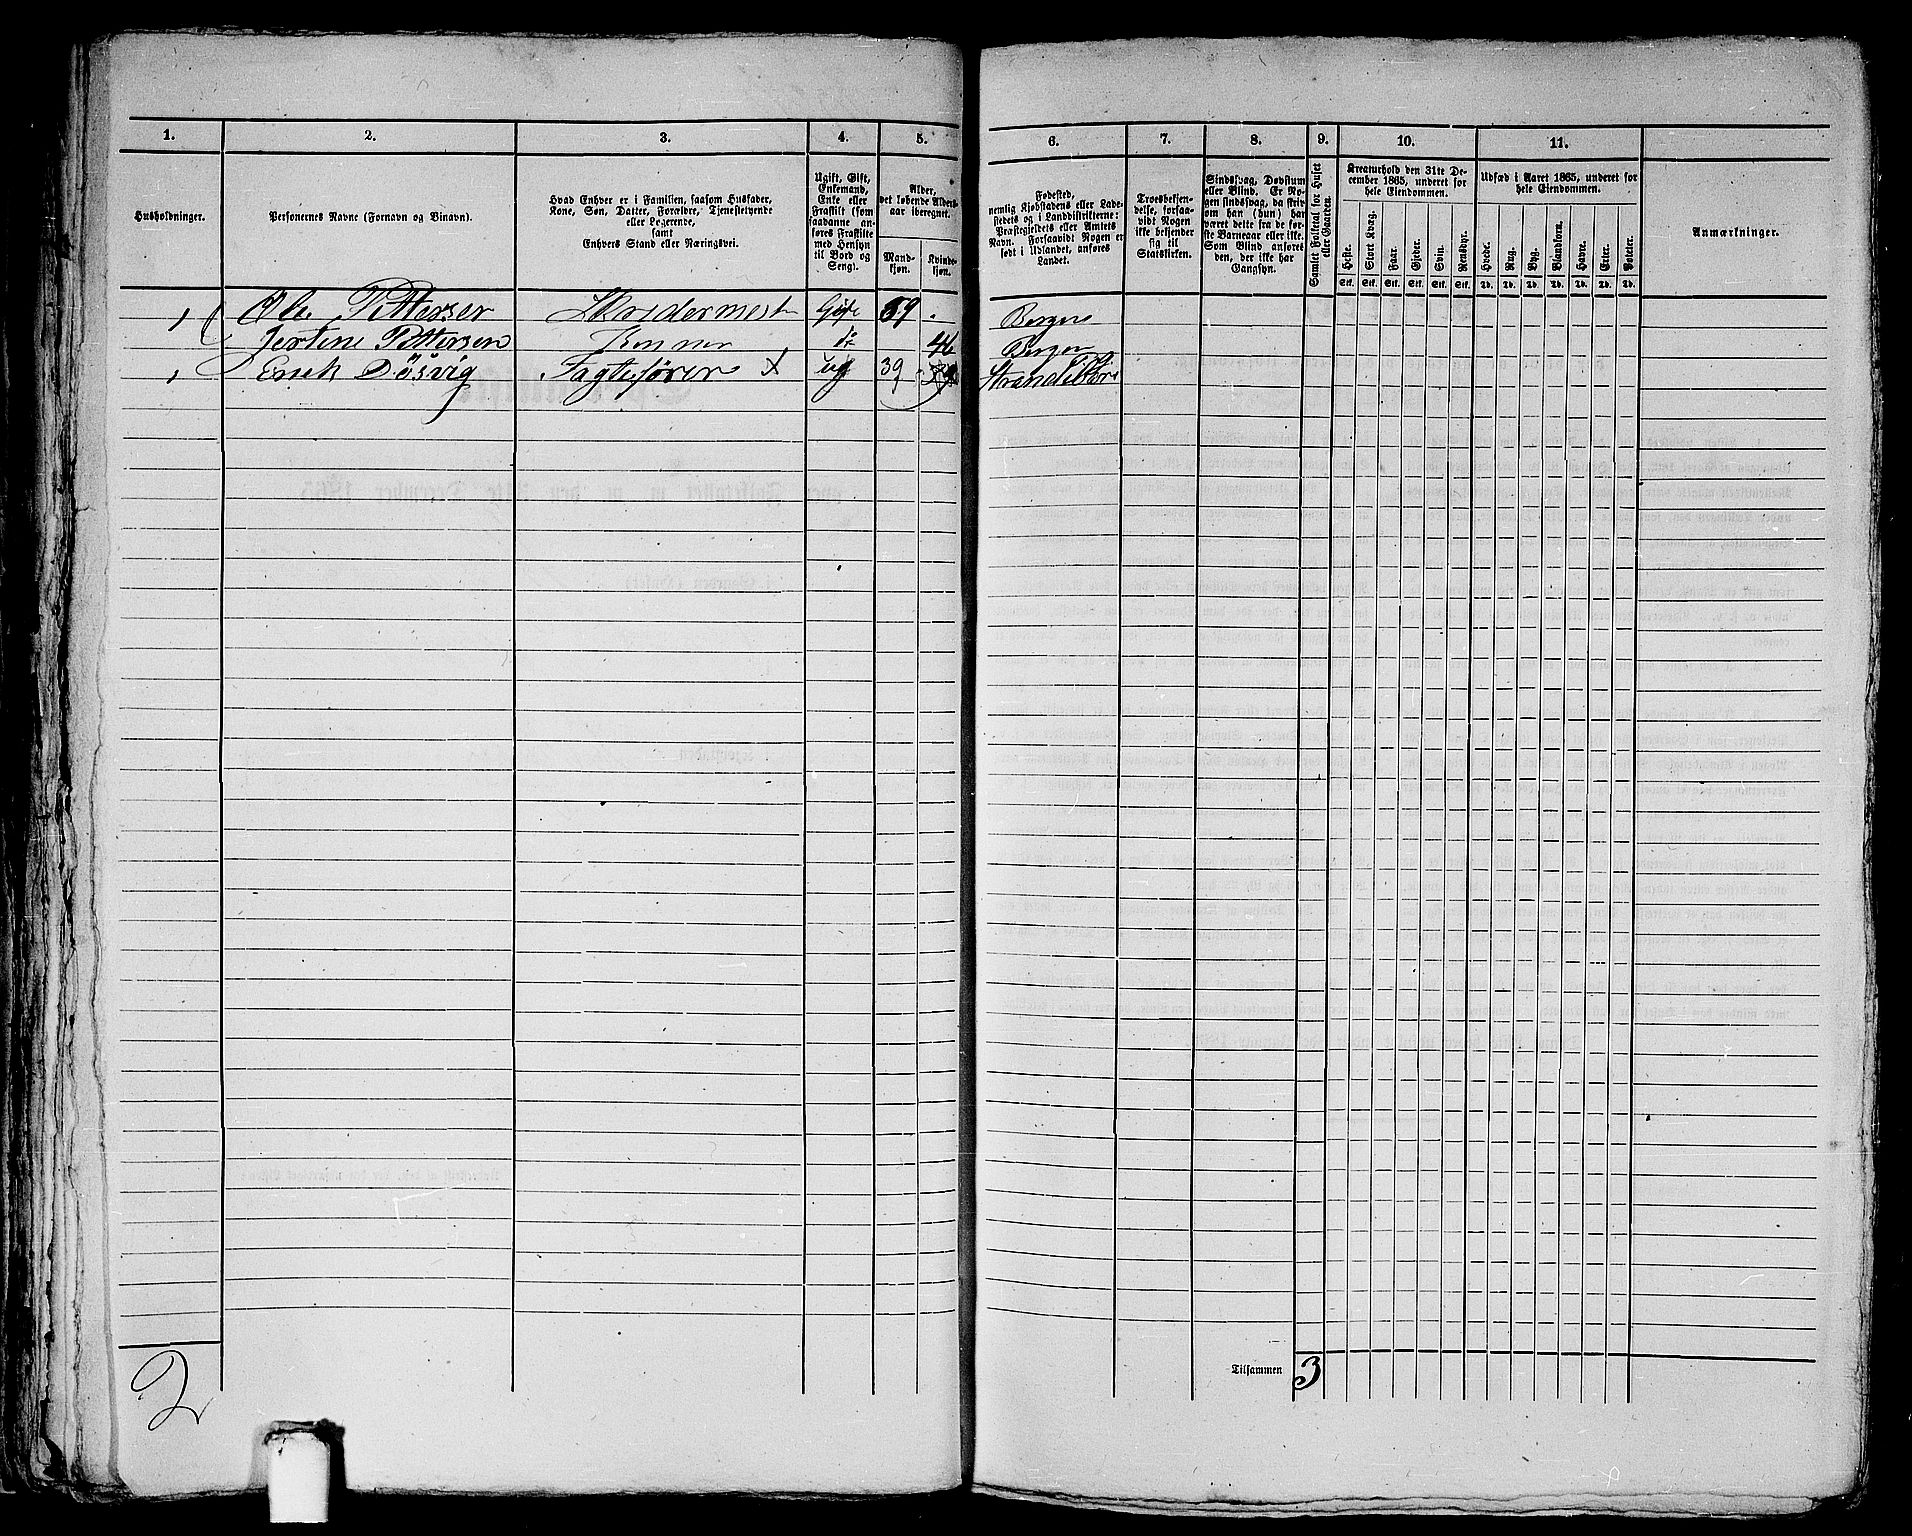 1. 2. 3. 4. 5. 6. 7. 8. 9. 10. 11.
Husholdninger.
Personernes Navne (Fornavn og Binavn).
Hvad Enhver er i Familien, saasom Husfader,
Kone, Søn, Datter, Forældre, Tjenestetyende
eller Logerende,
samt
Enhvers Stand eller Næringsvei.
Ugift, Gift,
Enkemand,
Enke eller
Fraskilt (som
saadanne an-
føres Fraskilte
med Hensyn
til Bord og
Seng).
Alder,
det løbende Alders-
aar iberegnet.
Mand-
kjøn.
Kvinde-
kjøn.
Fødested,
nemlig Kjøbstadens eller Lade-
stedets og i Landdistrikterne:
Præstegjeldets eller Amtets
Navn. Forsaavidt Nogen er
født i Udlandet, anføres
Landet.
Troesbekjen-
delse, forsaa-
vidt Nogen
ikke bekjender
sig til
Statskirken.
Sindssvag, Døvstum
eller Blind. Er No-
gen sindssvag, da skriv
om han (hun) har
været dette fra de før-
ste Barneaar eller ikke.
Som Blind anføres
den, der ikke har
Gangsyn.
Samlet Folketal for Huset
eller Gaarden.
Kreaturhold den 31te De-
cember 1865, underet for
hele Eiendommen.
Heste.
Stort Kvæg.
Faar.
Gjeder.
Svin.
Rensdyr.
Stk. Stk. Stk. Stk. Stk. Stk.
Udsæd i Aaret 1865, underet for
hele Eiendommen.
Hvede.
Rug.
Byg.
Blandkorn.
Havre.
Erter.
Poteter.
Td. Td. Td. Td. Td. Td. Td.
Anmærkninger.
1 Ole Pettersen Skredermest Gift 59 Bergen
Jertine Pettersen Konne do 46 Bergen
1 Erick Døsvig Fagtefører X ug 39
Tilsammen 3
2